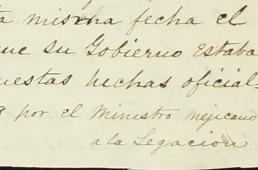 ta misma fecha el
que su Gobierno estaba
puestas hechas oficial-
por el Ministro mejicano
a la Legacion